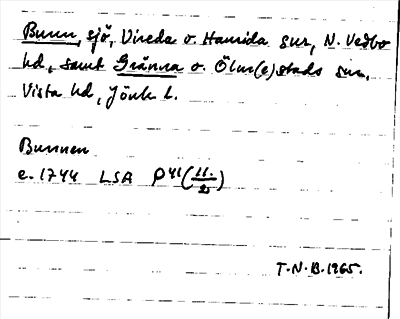 Bunn, sjö, Vireda o. Haurida snr, N. Vedbo
hd, samt Gränna o. Ölm(e)stads snr,
Vista hd, Jönk l.
Bunnen
e. 1744 LSA P41(11/2)
T.N.B. 1965.